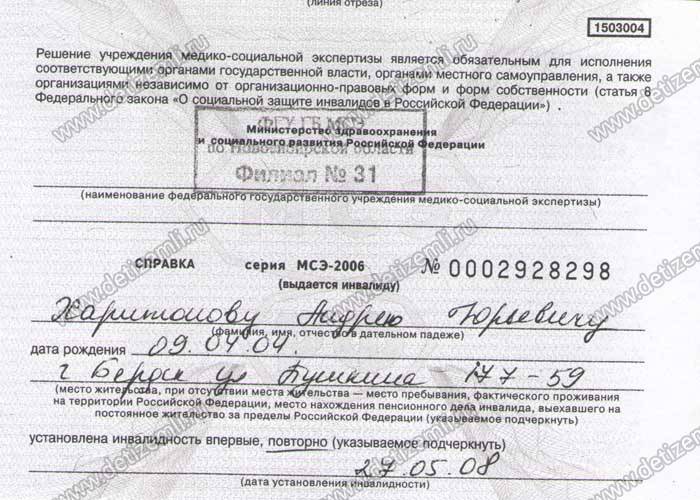 (линия отреза)
1503004
Решение учреждения медико-социальной экспертизы является обязательным для исполнения
соответствующими органами государственной власти, органами местного самоуправления, а также
организациями независимо от организационно-правовых форм и форм собственности (статья 8
Федерального закона «О социальной защите инвалидов в Российской Федерации») .
ФГУ ГБ МСЭ
Министерство здравоохранения
и социального развития Российской Федерации
по Новосибирской области
Филиал № 31
(наименование федерального государственного учреждения медико-социальной экспертизы)
СПРАВКА серия МСЭ-2006 № 0002928298
(выдается инвалиду)
Харитонову Андрею Юрьевичу
(фамилия, имя, отчество в дательном падеже)
дата рождения 09.04.04.
г Бердск ул Пушкина 177-59
(место жительства, при отсутствии места жительства — место пребывания, фактического проживания
на территории Российской Федерации, место нахождения пенсионного дела инвалида, выехавшего на
постоянное жительство за пределы Российской Федерации (указываемое подчеркнуть)
установлена инвалидность впервые, повторно (указываемое подчеркнуть)
27.05.08
(дата установления инвалидности)
www.detizemli.ru